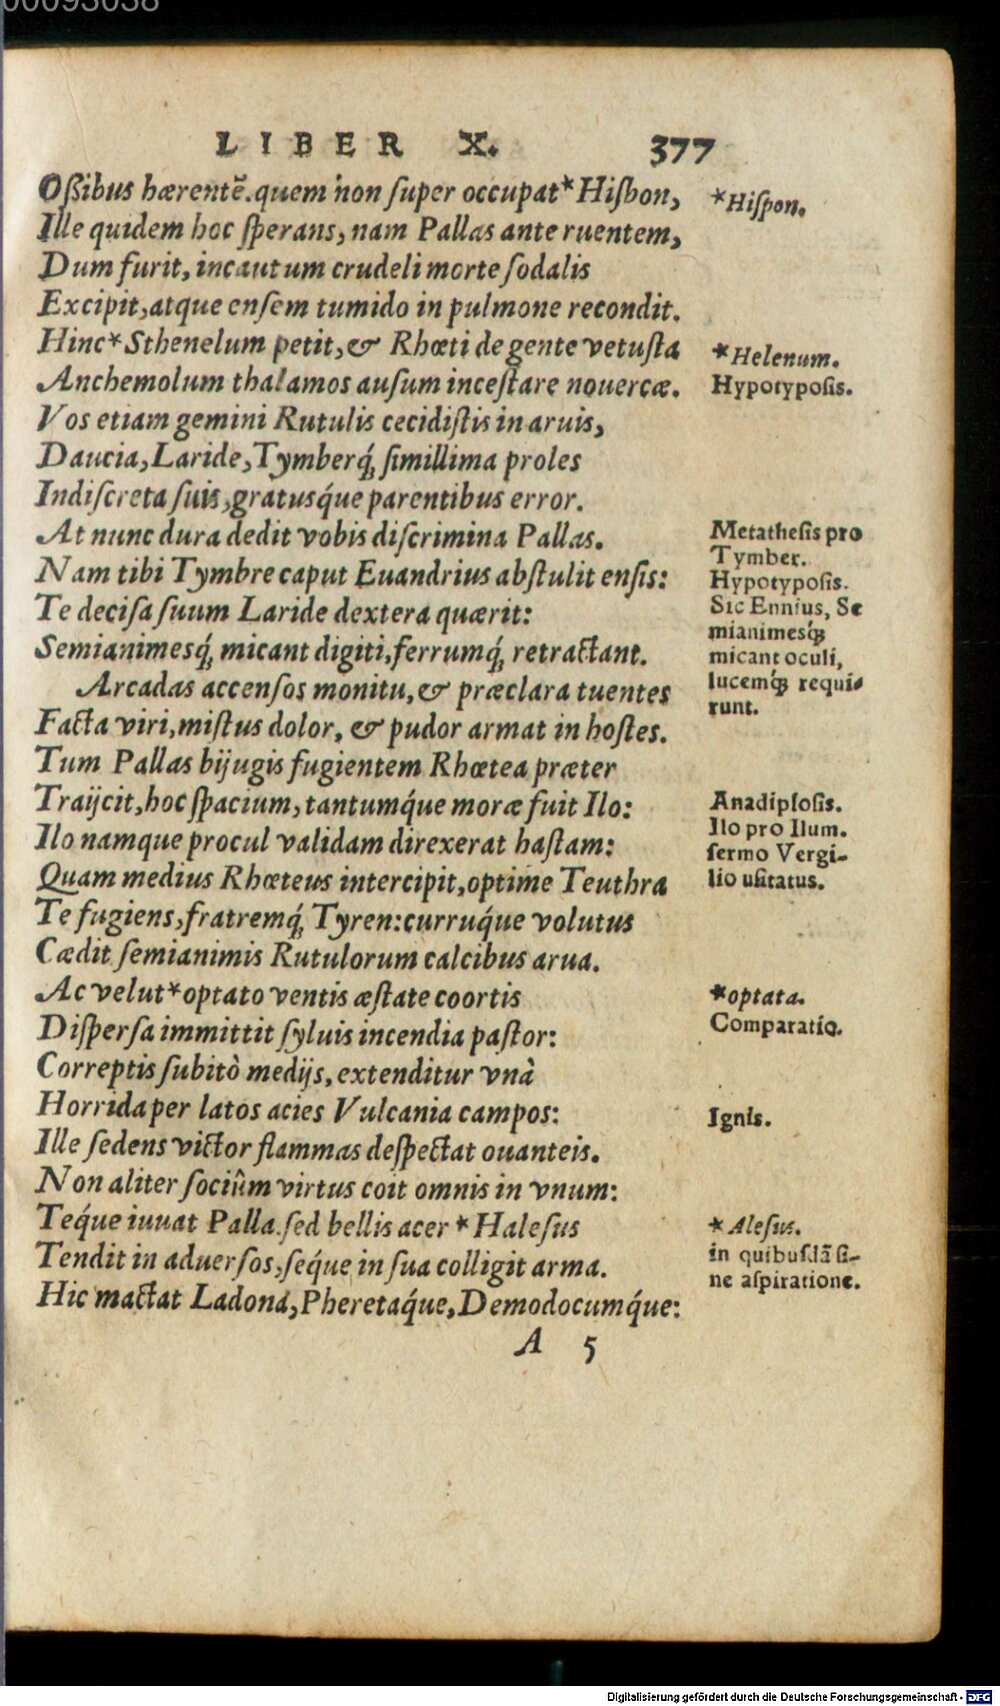 00093038
LIBER X. 377
Oßibus hærentē. quem non ſuper occupat*Hiſbon,
*Hiſpon.
Ille quidem hoc ſperans, nam Pallas ante ruentem,
Dum furit, incautum crudeli morte ſodalis
Excipit, atque enſem tumido in pulmone recondit.
Hinc*Sthenelum petit, & Rhœti de gente vetuſta
*Helenum.
Anchemolum thalamos auſum inceſtare nouercæ.
Hypotypoſis.
Vos etiam gemini Rutulis cecidiſtis in aruis,
Daucia, Laride, Tymberq́, ſimillima proles
Indiſcreta ſuis, gratusq́ue parentibus error.
At nunc dura dedit vobis diſcrimina Pallas.
Metatheſis pro
Tymber.
Nam tibi Tymbre caput Euandrius abſtulit enſis:
Hypotypoſis.
Te deciſa ſuum Laride dextera quærit:
Sic Ennius, Se
mianimesq́;
Semianimesq́, micant digiti, ferrumq́, retractant.
micant oculi,
lucemq́; requi-
runt.
Arcadas accenſos monitu, & præclara tuentes
Facta viri, miſtus dolor, & pudor armat in hoſtes.
Tum Pallas bijugis fugientem Rhœtea præter
Traijcit, hoc ſpacium, tantumq́ue moræ fuit Ilo:
Anadiploſis.
Ilo namque procul validam direxerat haſtam:
Ilo pro Ilum.
ſermo Vergi-
Quam medius Rhœteus intercipit, optime Teuthra
lio uſitatus.
Te fugiens, fratremq́, Tyren: curruq́ue volutus
Cædit ſemianimis Rutulorum calcibus arua.
Ac velut*optato ventis æſtate coortis
*optata.
Diſperſa immittit ſyluis incendia paſtor:
Comparatio.
Correptis ſubitò medijs, extenditur vnà
Horrida per latos acies Vulcania campos:
Ignis.
Ille ſedens victor flammas deſpectat ouanteis.
Non aliter ſociûm virtus coit omnis in vnum:
Teq́ue iuuat Palla. ſed bellis acer *Haleſus
*Aleſus.
Tendit in aduerſos, ſeq́ue in ſua colligit arma.
in quibuſdã ſi-
ne aſpiratione.
Hic mactat Ladona, Pheretaq́ue, Demodocumq́ue:
A 5
Digitalisierung gefördert durch die Deutsche Forschungsgemeinschaft - DFG